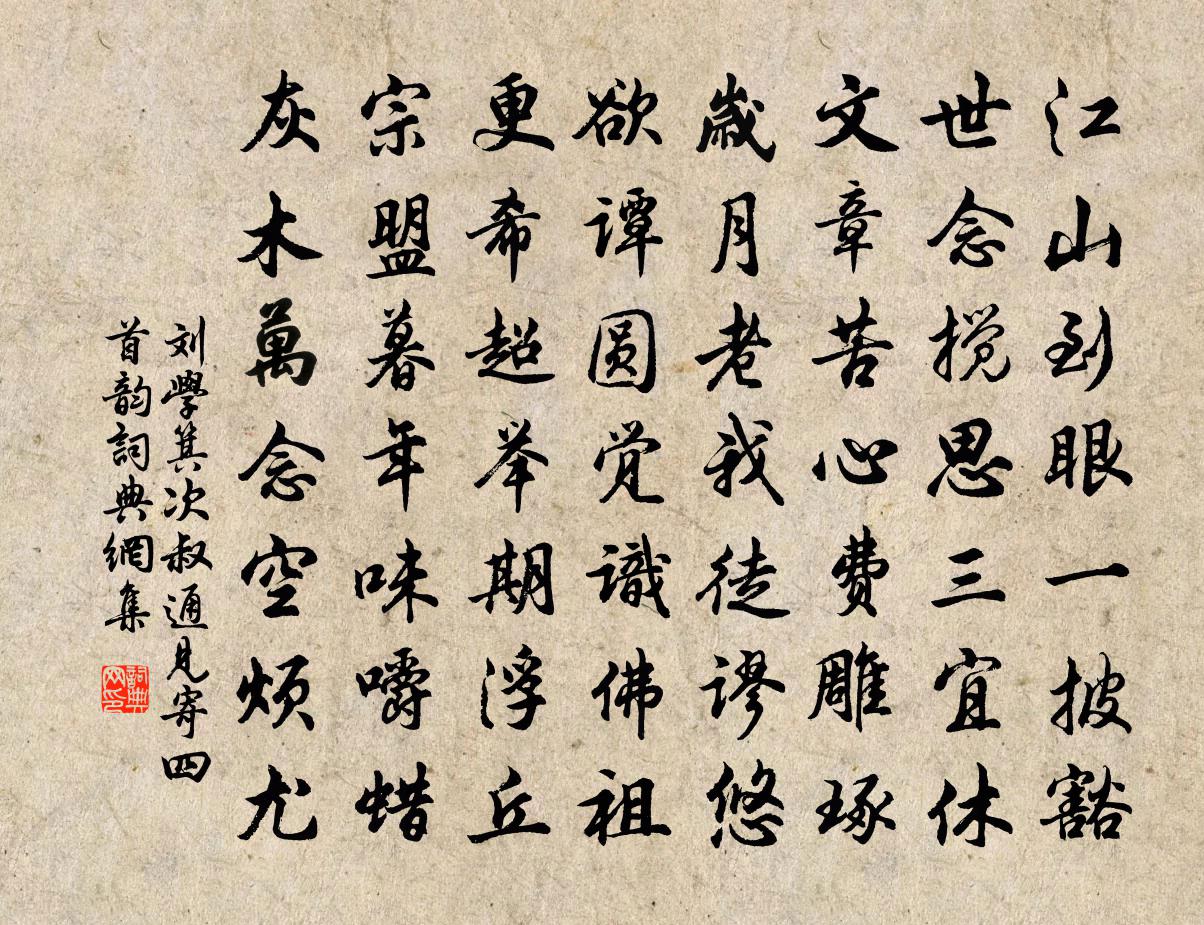 江山到眼一披豁
世念搅思三宜休
文章苦心費雕琢
歲月老我徒謬悠
欲譚圆觉識佛祖
更希超举期浮丘
宗盟暮年味嚼蜡
灰木萬念空烦尤
刘學箕次叔通見寄四
首韵詞典網集
詞典
网印